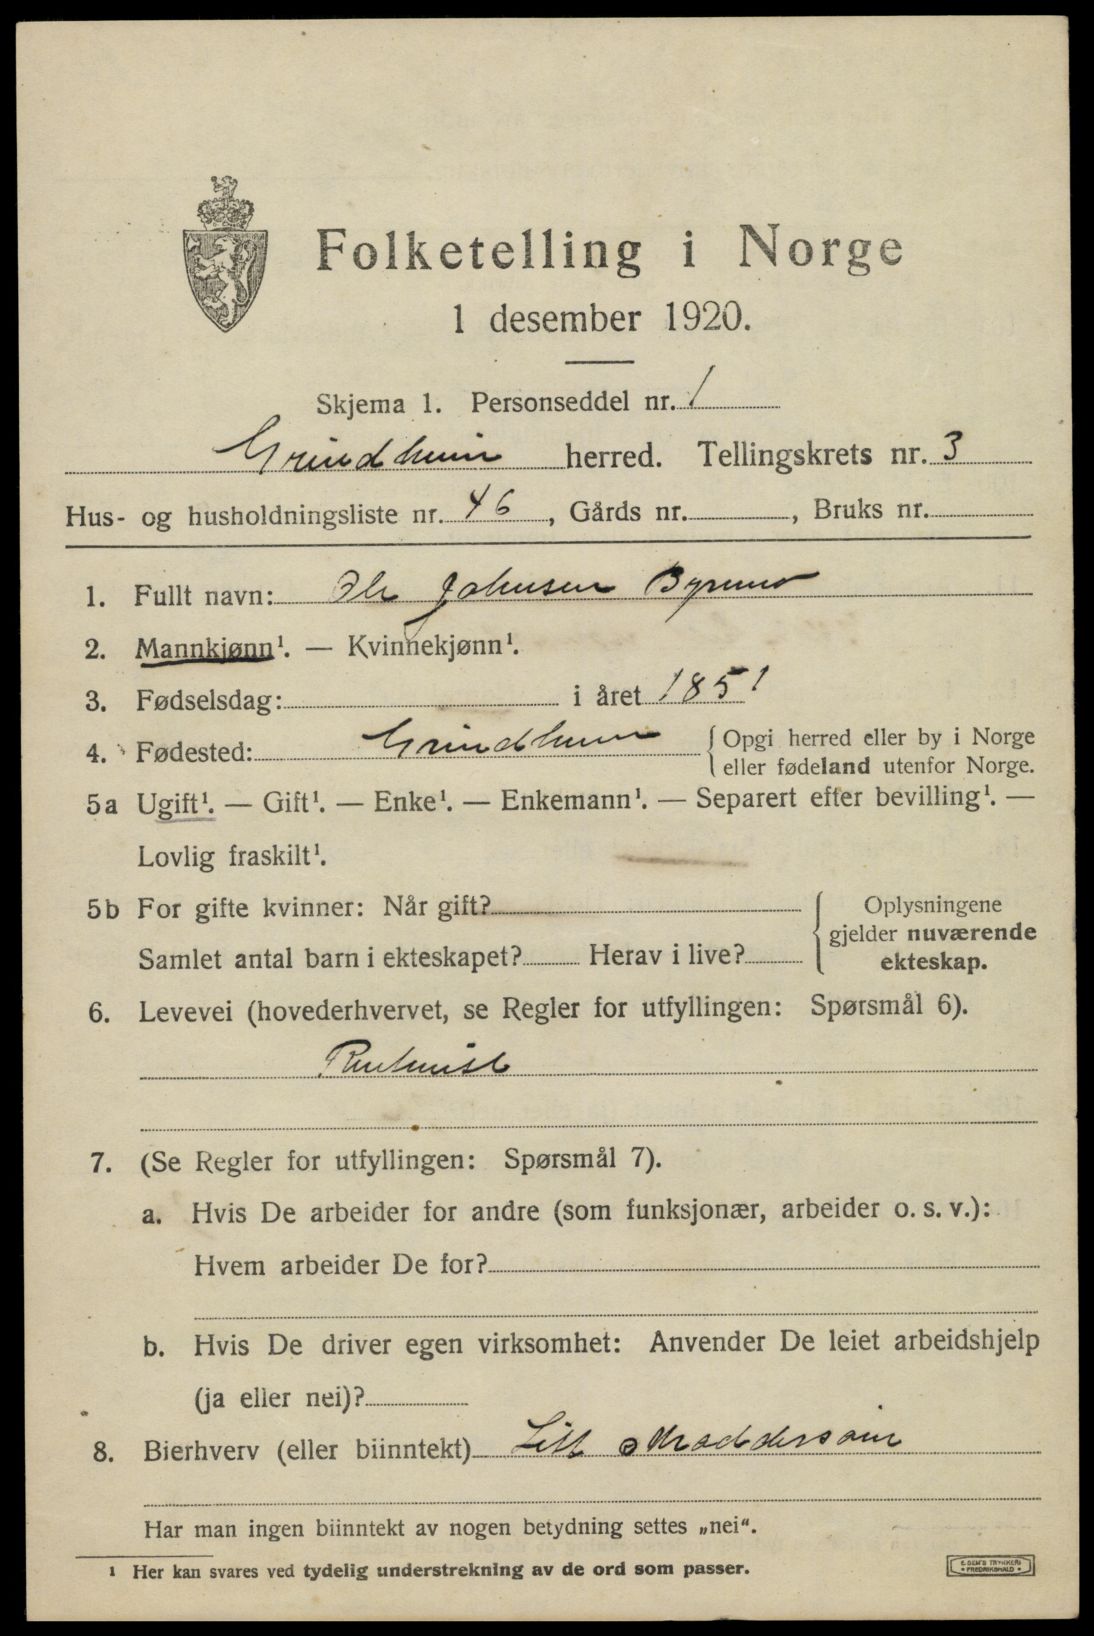 Folketelling i Norge
1 desember 1920.
Skjema 1. Personseddel nr. 1
Grindheim herred. Tellingskrets nr. 3
Hus- og husholdningsliste nr. 46, Gårds nr. , Bruks nr.
1. Fullt navn: Ole Johnsen Byremo
2. Mannkjønn¹. — Kvinnekjønn¹.
3. Fødselsdag: i året 1851
4. Fødested: Grindheim {Opgi herred eller by i Norge
eller fødeland utenfor Norge.
5a Ugift¹. — Gift¹. — Enke¹. — Enkemann¹. — Separert efter bevilling¹. —
Lovlig fraskilt¹.
5b For gifte kvinner: Når gift? Oplysningene
gjelder nuværende
Samlet antal barn i ekteskapet? Herav i live? ekteskap.
6. Levevei (hovederhvervet, se Regler for utfyllingen: Spørsmål 6).
7. (Se Regler for utfyllingen: Spørsmål 7).
a. Hvis De arbeider for andre (som funksjonær, arbeider o. s. v.):
Hvem arbeider De for?
b. Hvis De driver egen virksomhet: Anvender De leiet arbeidshjelp
(ja eller nei)?
8. Bierhverv (eller biinntekt) Litt skreddersøm
Har man ingen biinntekt av nogen betydning settes „nei“.
¹ Her kan svares ved tydelig understrekning av de ord som passer.
E. SEM'S TRYKKERI
FREDRIKSHALD